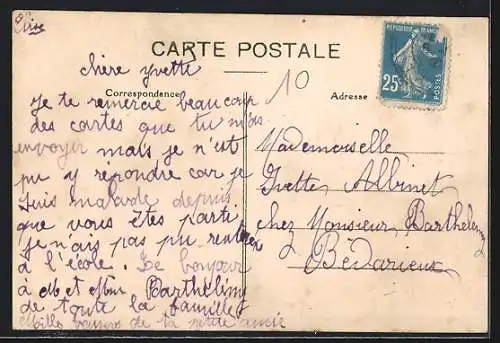 CARTE POSTALE
chère yvette
10
Correspondance
Adresse
REPUBLIQUE FRANÇAISE
25c
POSTES
Je te remercie beaucoup
des cartes que tu m'as
envoyer mais je n'est
pu y répondre car je
suis malade depuis
que vous êtes parti
je n'ais pas pu rentrer
à l'école. Le bonjour
à M et Mme Barthélemy
de toute la famille
Mille baisers de ta petite amie
Mademoiselle
Yvette Albinet
chez Monsieur Barthelemy
à Bédarieux